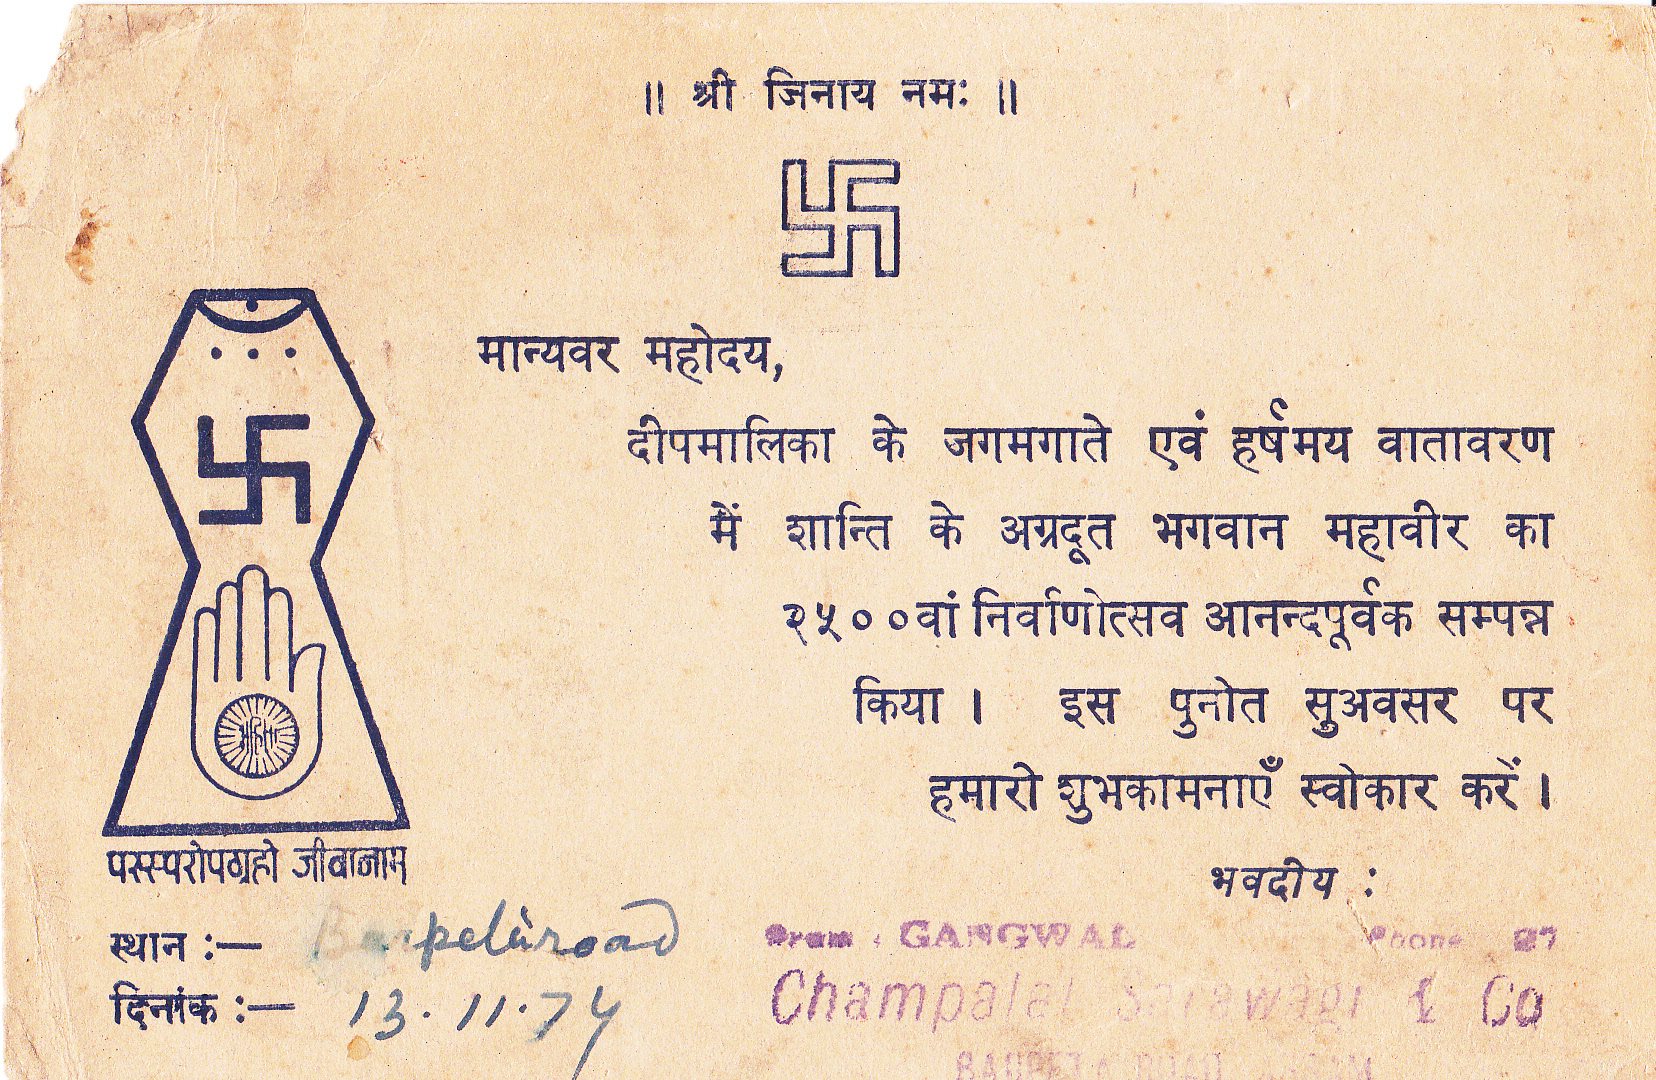 ॥ श्री जिनाय नमः ॥
मान्यवर महोदय,
दीपमालिका के जगमगाते एवं हर्षमय वातावरण
में शान्ति के अग्रदूत भगवान महावीर का
२५००वां निर्वाणोत्सव आनन्दपूर्वक सम्पन्न
किया । इस पुनोत सुअवसर पर
हमारो शुभकामनाएँ स्वोकार करें ।
भवदीय :
अहिंसा
परस्परोपग्रहो जीवानाम
स्थान :—
दिनांक :— 13.11.74
Gram : GANGWAL Phone 27
Champalal Sarawagi & Co
BARPETA ROAD ASSAM